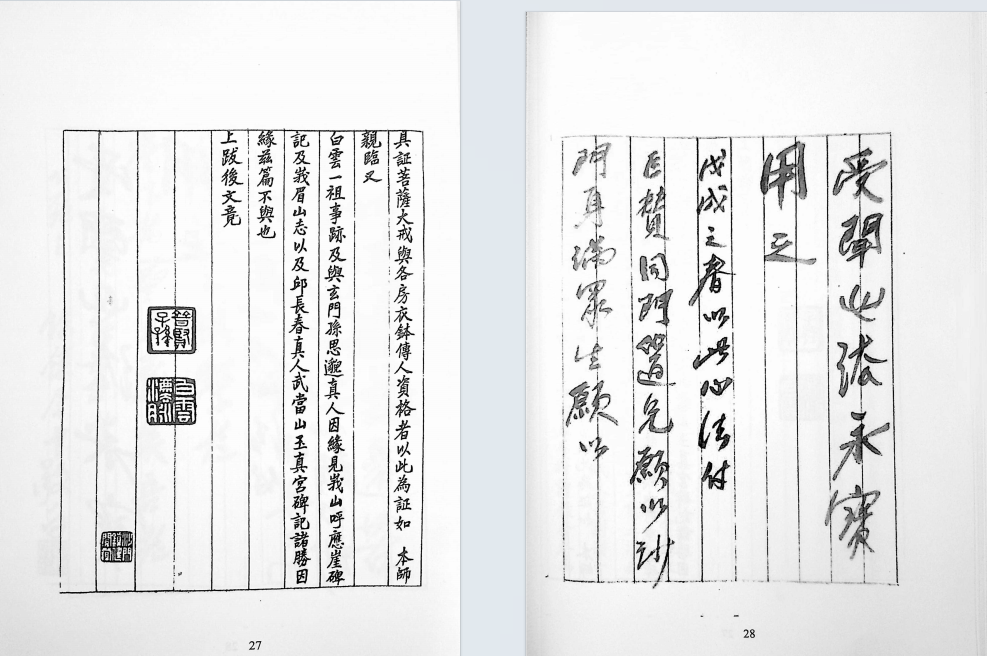 具証菩薩大戒與各房衣鉢傳人資格者以此為証如 本師
親臨又
白雲一祖事跡及與玄門孫思邈真人因緣見峩山呼應崖碑
記及峩眉山志以及邱長春真人武當山玉真宮碑記諸勝因
緣茲篇不與也
上跋後文竟
普賢
子孫
白雲
法脉
27
受聞此法永寶
用之
戊戌之春以此心法付
臣贊同門道兄願以沙
門身滿眾生願以
28